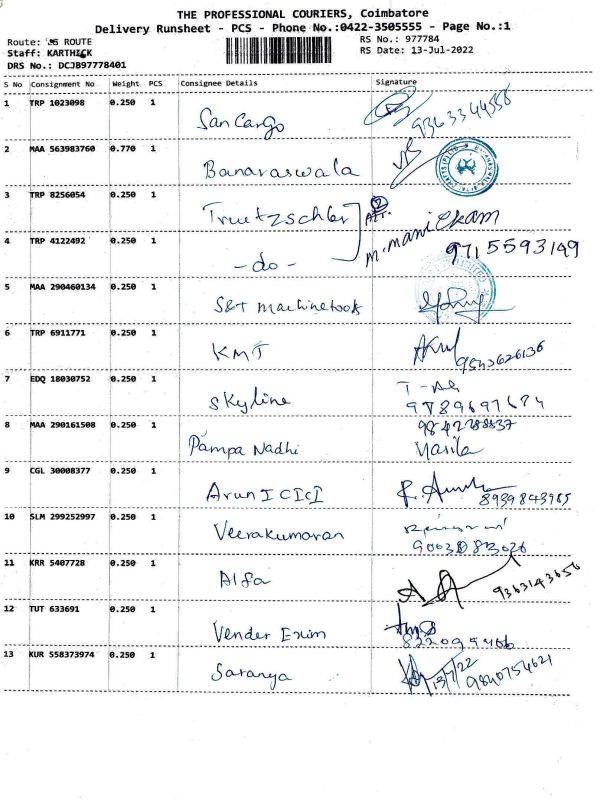 THE PROFESSIONAL COURIERS, Coimbatore
Delivery Runsheet - PCS - Phone No.:0422-3505555 - Page No.:1
Route: ROUTE
RS No.: 977784
Staff: KARTHICK
RS Date: 13-Jul-2022
DRS No.: DCJB97778401
S No Consignment No Weight PCS Consignee Details Signature
1 TRP 1023098 0.250 1 San Cargo 9363344556
2 MAA 563983760 0.770 1 Banaraswala
3 TRP 8256054 0.250 1 Truetzschler
M. Manickam
4 TRP 4122492 0.250 1 -do- 9715593149
5 MAA 290460134 0.250 1 S&T Machinetools
6 TRP 6911771 0.250 1 KMT 9543626136
7 EDQ 18030752 0.250 1 Skyline
9789697674
8 MAA 290161508 0.250 1 Pampa Nadhi
9 CGL 30008377 0.250 1 Arun ICICI 8939843985
10 SLM 299252997 0.250 1 Veerakumaran
11 KRR 5407728 0.250 1 Alfa 9363143656
12 TUT 633691 0.250 1 Vender Exim
13 KUR 558373974 0.250 1 Saranya 13/7/22 9840754621